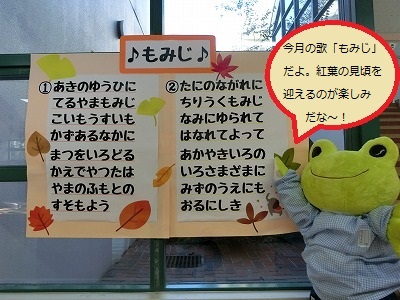 ♪もみじ♪
①あきのゆうひに
てるやまもみじ
こいもうすいも
かずあるなかに
まつをいろどる
かえでやつたは
やまのふもとの
すそもよう
②たにのながれに
ちりうくもみじ
なみにゆられて
はなれてよって
あかやきいろの
いろさまざまに
みずのうえにも
おるにしき
今月の歌「もみじ」
だよ。紅葉の見頃を
迎えるのが楽しみ
だな～！